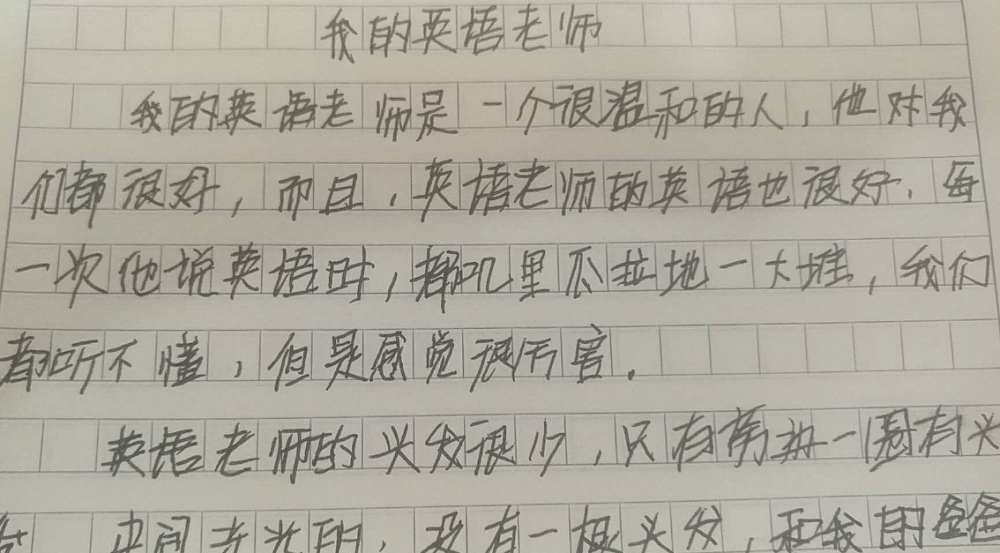 我的英语老师
我的英语老师是一个很温和的人，他对我
们都很好，而且，英语老师的英语也很好．每
一次他说英语时，都叽里瓜拉地一大堆，我们
都听不懂，但是感觉很历害．
英语老师的头发很少，只有旁边一圈有头
发 中间光光的．没有一根头发，和我的爸爸